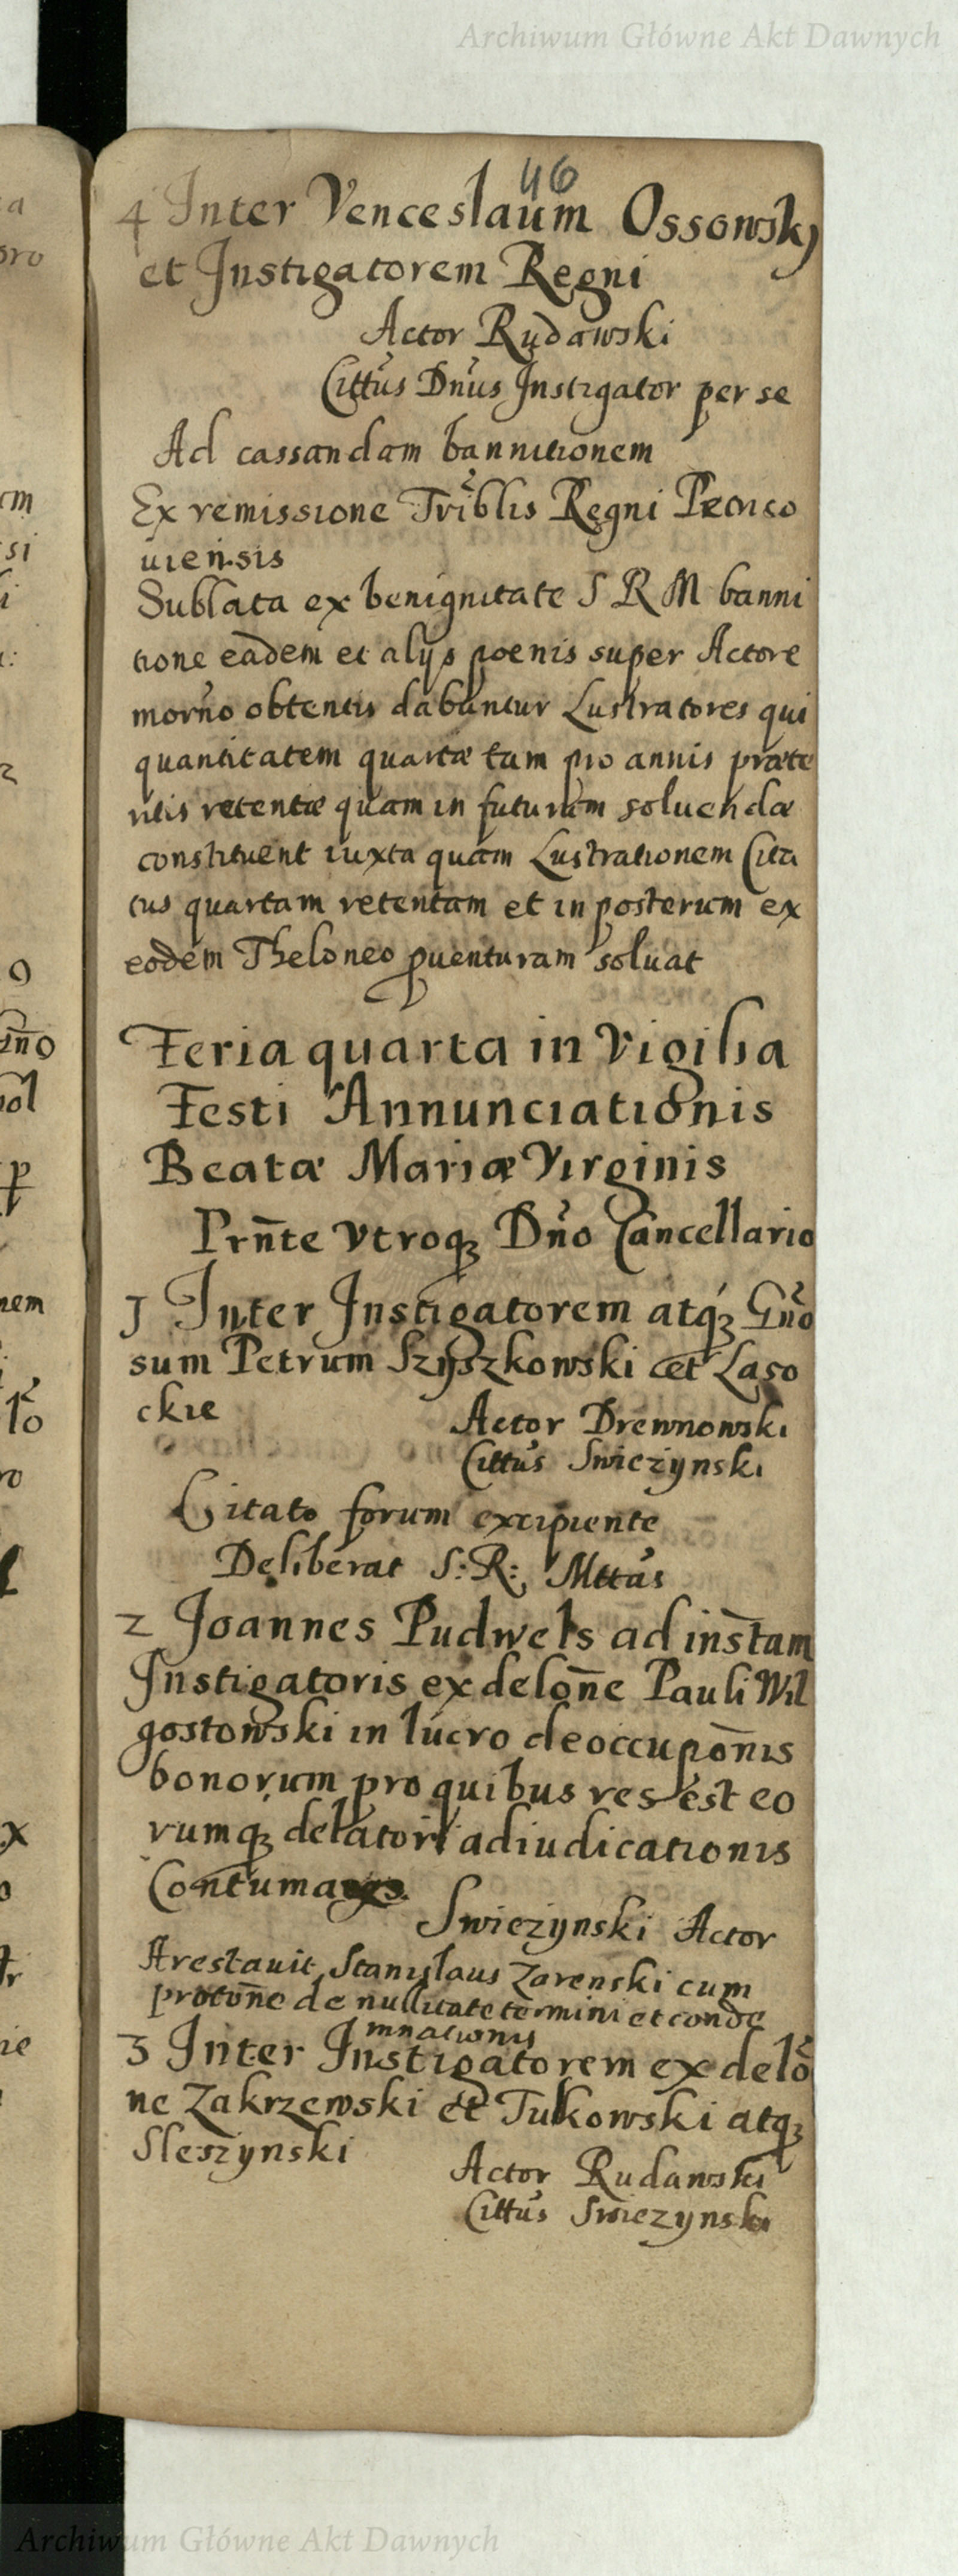 Archiwum Główne Akt Dawnych
46
4 Inter Venceslaum Ossowskj
et Instigatorem Regni
Actor Rudawski
Citt̃us Dñus Instigator per se
Ad cassandam bannitionem
Ex remissione Tri̇̃blis Regni Petrico
uiensis
Sublata ex benignitate S R M banni
tione eadem et alijs poenis super Actore
morño obtentis dabuntur Lustratores qui
quantitatem quartæ tam pro annis præte
ritis retentæ quam in futurum soluendæ
constituent iuxta quam Lustrationem Cita
tus quartam retentam et in posterum ex
eodem Theloneo ꝓuenturam soluat
Feria quarta in Vigilia
Festi Annunciationis
Beatæ Mariæ Virginis
Prñte vtroqꝫ Dño Cancellario
1 Inter Instigatorem atqꝫ Gño
sum Petrum Szyszkowski et Laso
ckie
Actor Drewnowski
Citt̃us Swieżynski
Citato forum excipiente
Deliberat S: R: Mttãs
2 Joannes Pudwels ad inst̃am
Instigatoris ex deloñe Pauli Wil
gostowski in lucro deoccupoñis
bonorum pro quibus res est eo
rumqꝫ delatori adiudicationis
Swieżynski Actor
Arestauit Stanislaus Zarenski cum
protoñe de nullitate termini et conde
mnationis
3 Inter Instigatorem ex delõ
ne Zakrzewski et Tulkowski atqꝫ
Sleszynski
Actor Rudawski
Citt̃us Swiezynski
Archiwum Główne Akt Dawnych